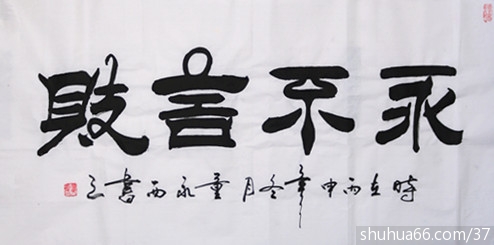 永不言敗
時在丙申年冬月董永西書之
shuhua66.com/37